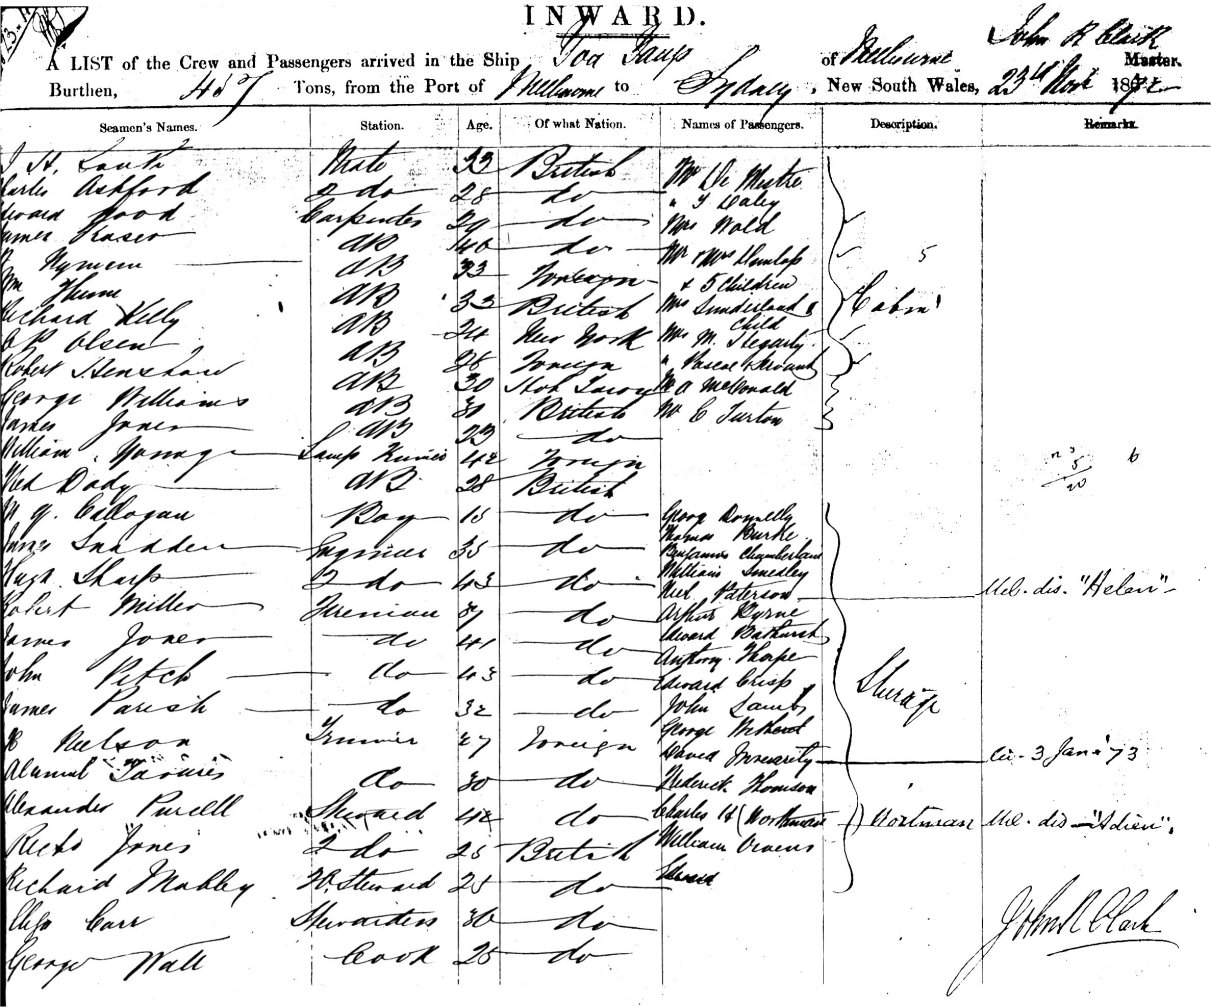 INWARD.
John R Clark
A LIST of the Crew and Passengers arrived in the Ship of Melbourne Master.
Burthen, 457 Tons, from the Port of Melbourne to Sydney, New South Wales, 23rd Nov 1872
Seamen's Names. Station. Age. Of what Nation. Names of Passengers. Description. Remarks.
J H. South Mate 33 British Mr De Mestre
Charles Ashford 2 do 28 do " T Daley
Edward Hood Carpenter 29 do Mrs Wold
James Fraser AB 40 do Mr & Mrs Dunlop 5
Nymen AB 33 Foreign & 5 Children
Wm Hume AB 33 British Mrs Sunderland & Cabin
Richard Kelly AB 24 New York Child
Olsen AB 28 Foreign Mrs M. Hegarty
Robert Henshaw AB 30 " Pascoe & Servant
George Williams AB British Mr A McDonald
James Jones AB 23 do Mr C Turton
William Young Lamp Trimmer 42 Foreign
Dady AB 28 British
Cadogan Boy 15 do George Donnelly
James Snadden Engineer 35 do Thomas Burke
Benjamin Chamberland
Hugh Sharp 2 do 43 do William Smedley
Robert Miller Fireman 37 do Paterson Mel. dis. "Helen"
Arthur Byrne
James Jones do 41 do Edward Bathurst
John Petch do 43 do Anthony Thorpe
Edward Crisp Steerage
James Parish do 32 do John Lamb
Neilson Trimmer 27 Foreign George
David Inverarity 3 Jan 73
Tavares do 30 do Frederick Thomson
Alexander Purcell Steward 42 do Charles H (Wortman) Wortman Mel. dis
Jones 2 do 25 British William Owens
Richard Mobley F. Steward 25 do
Eliza Carr Stewardess 30 do
John R Clark
George Watt Cook 25 do